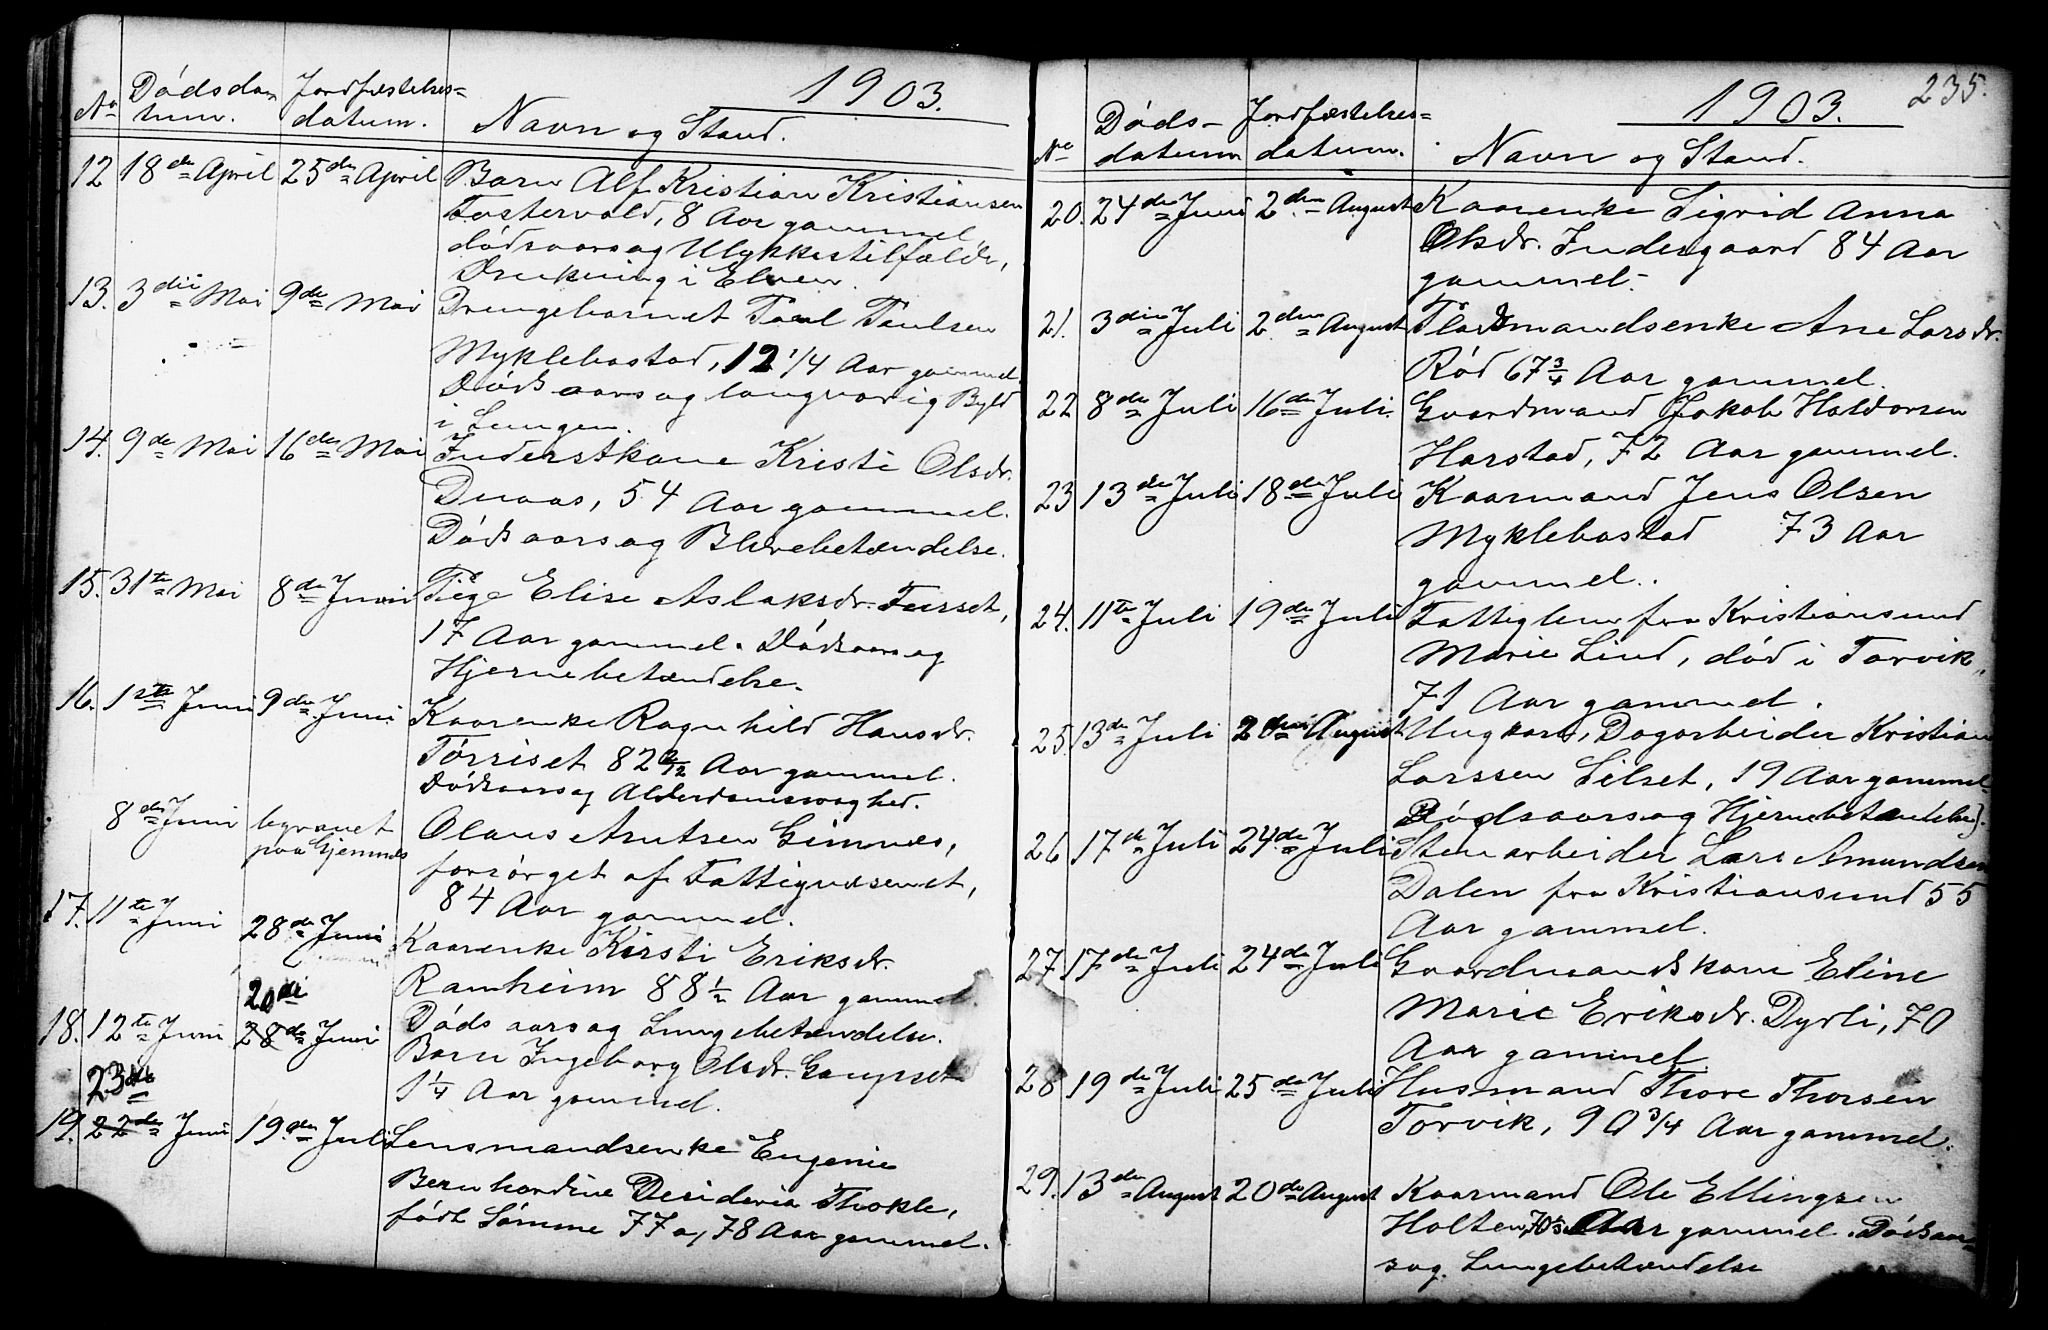 1903.
No Dødsda- Jordfæstelses=
tum. datum. Navn og Stand.
12 18de April 25de April Barn Alf Kristian Kristiansen
Fostervold, 8 Aar gammel
dødsaarsag Ulykkestilfælde,
Drukning i Elven.
13. 3die Mai 9de Mai Drengebarnet Paul Paulsen
Myklebostad, 12 1/4 Aar gammel.
Dødsaarsag langvarig Byld
i Lungen.
14. 9de Mai 16de Mai Inderstkone Kristi Olsdr.
Duaas, 54 Aar gammel.
Dødsaarsag Blærebetændelse.
15. 31te Mai 8de Juni Pige Elise Aslaksdr. Fusset,
17 Aar gammel. Dødsaarsag
Hjernebetændelse.
16. 1ste Juni 9de Juni Kaarenke Ragnhild Hansdr.
Torriset 82 Aar gammel.
Dødsaarsag Alderdomssvaghed.
8de Juni begravet Olaus Arntsen Gimnes,
paa Gjemnes forsørget af Fattigvæsenet,
84 Aar gammel.
17. 11te Juni 28de Juni Kaarenke Kirsti Eriksdr.
Ranheim 88 1/2 Aar gammel.
Døds aarsag Lungebetændelse.
20de
18. 12te Juni 28de Juni Barn Ingeborg Olsdr. Gaupset
1 1/4 Aar gammel.
23de
19. 22de Juni 19de Juli Lensmandsenke Eugenie
Bernhardine Desideria Thokle,
født Sømme 77 a 78 Aar gammel.
235.
1903.
No Døds- Jordfæstelses=
datum datum. Navn og Stand.
20. 24de Juni 2den August Kaarenke Sigrid Anna
Olsdr. Indergaard 84 Aar
gammel.
21. 3die Juli 2den August Enke Ane Larsdr.
Rød 67 3/4 Aar gammel.
22 8de Juli 16de Juli. Gaardmand Jakob Haldorsen
Harstad, 72 Aar gammel.
23 13de Juli 18de Juli Kaarmand Jens Olsen
Myklebostad 73 Aar
gammel.
24. 11te Juli 19de Juli Fattiglem fra Kristiansund
Marie Lind, død i Torvik,
71 Aar gammel.
25 13de Juli 2den August Ungkarl, Dagarbeider Kristian
Larssen Silset, 19 Aar gammel.
Dødsaarsag Hjernebetændelse).
26 17de Juli 24de Juli Stenarbeider Lars Amundsen
Dalen fra Kristiansund 55
Aar gammel.
27 17de Juli 24de Juli Gaardmandskone Eline
Marie Eriksdr. Dyrli, 70
Aar gammel
28 19de Juli 25de Juli Husmand Thore Thorsen
Torvik, 90 3/4 Aar gammel.
29. 13de August 20de August Kaarmand Ole Ellingsen
Holten, 70 1/3 Aar gammel. Dødsaar=
sag. Lungebetændelse